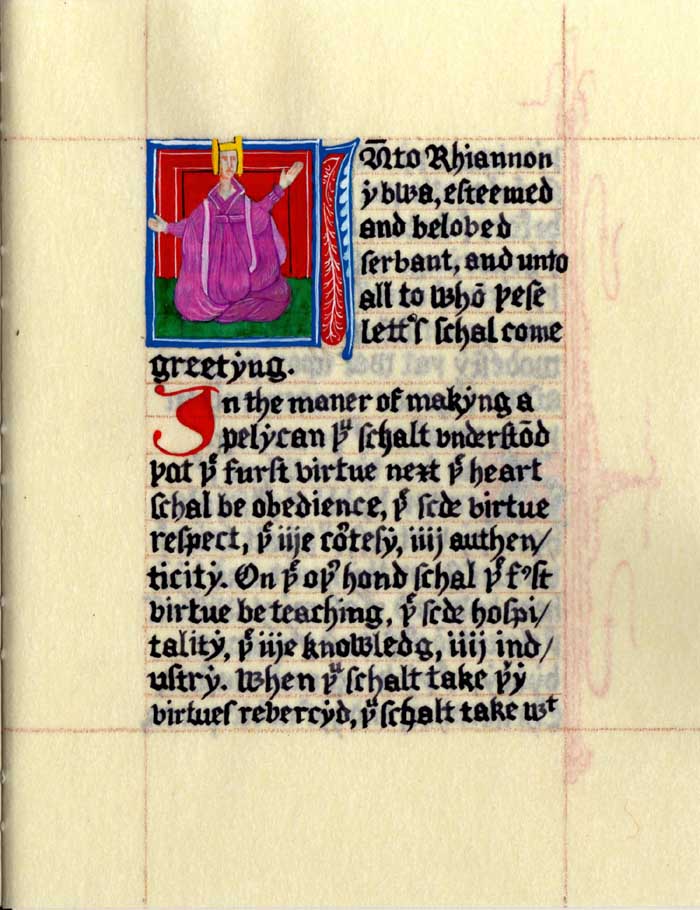 Unto Rhiannon
ẏ bwa, eſteemed
and beloved
ſervant, and unto
all to whō þeſe
lettᵉʳſ ſchal come
greetẏng.
In the maner of makẏng a
pelẏcan þᵘ ſchalt vnderſtōd
þat þᵉ furſt virtue next þᵉ heart
ſchal be obedience, þᵉ ſcde virtue
reſpect, þᵉ iije coᵒteſẏ, iiij authen/
ticitẏ. On þᵉ oþᵉ hond ſchal þᵉ f’ſt
virtue be teaching, þᵉ ſcde hoſpi/
talitẏ, þᵉ iije knowledg, iiij ind/
uſtrẏ. When þᵘ ſchalt take þẏ
virtueſ rehercẏd, þᵘ ſchalt take wᵗ